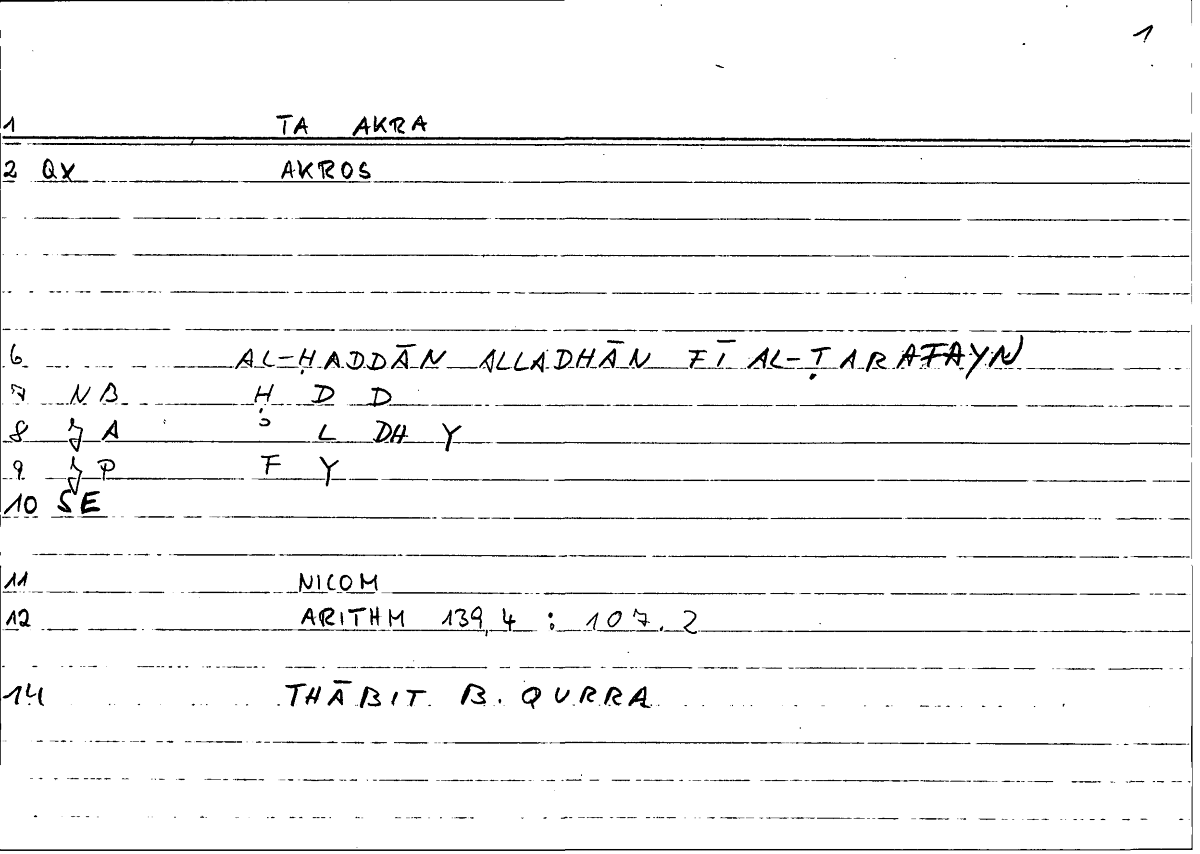 1
1 TA AKRA
2 QX AKROS
6 AL-ḤADDĀN ALLADHĀN FĪ AL-ṬARAFAYN
7 NB Ḥ D D
8 A L DH Y
9 P F Y
10 SE
11 NICOM
12 ARITHM 139,4 : 107.2
14 THĀBIT B. QURRA